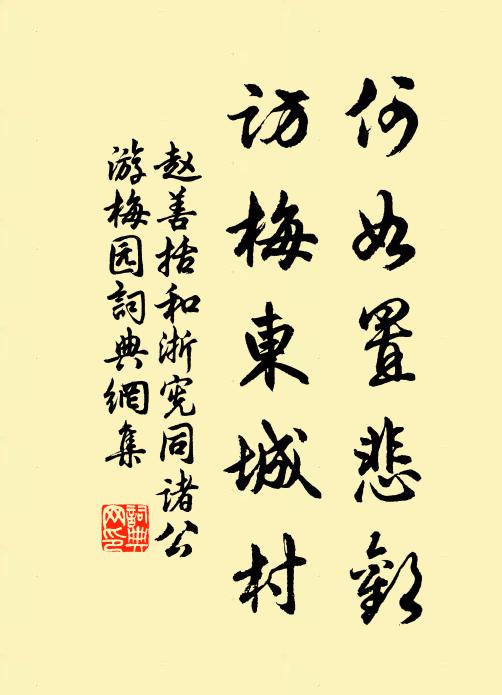 何如置悲歡
訪梅東城村
赵善括和浙宪同诸公
游梅园詞典網集
詞典網印